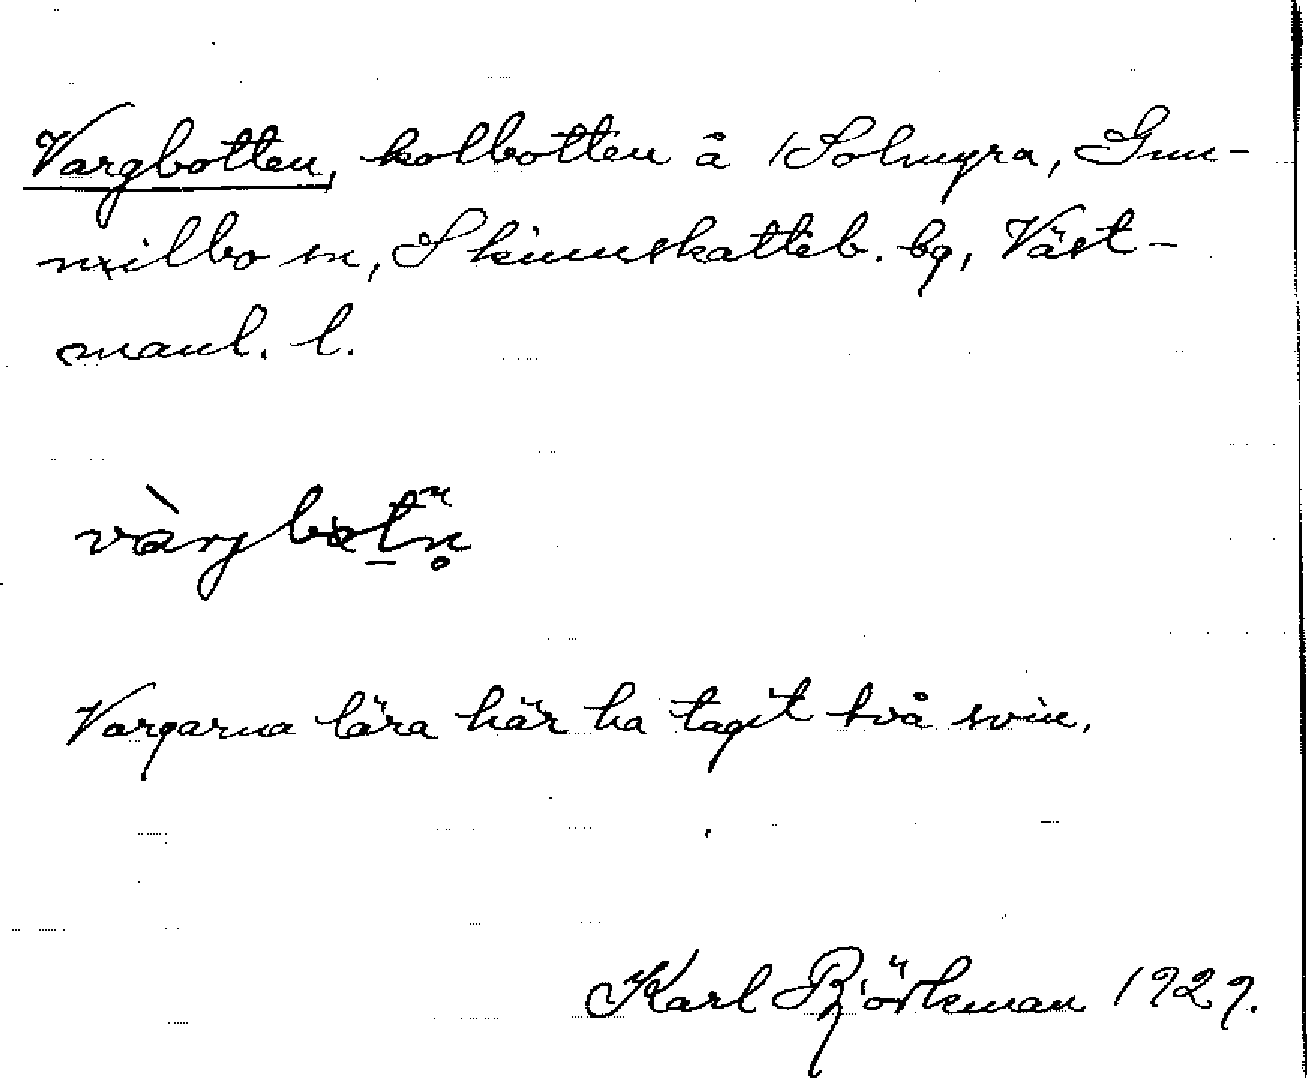 Vargbotten, kolbotten å Solmyra, Gun-
nilbo sn, Skinnskatteb. bg, Väst-
manl. l.
Vargarna lära här ha tagit två svin.
Karl Björkman 1929.